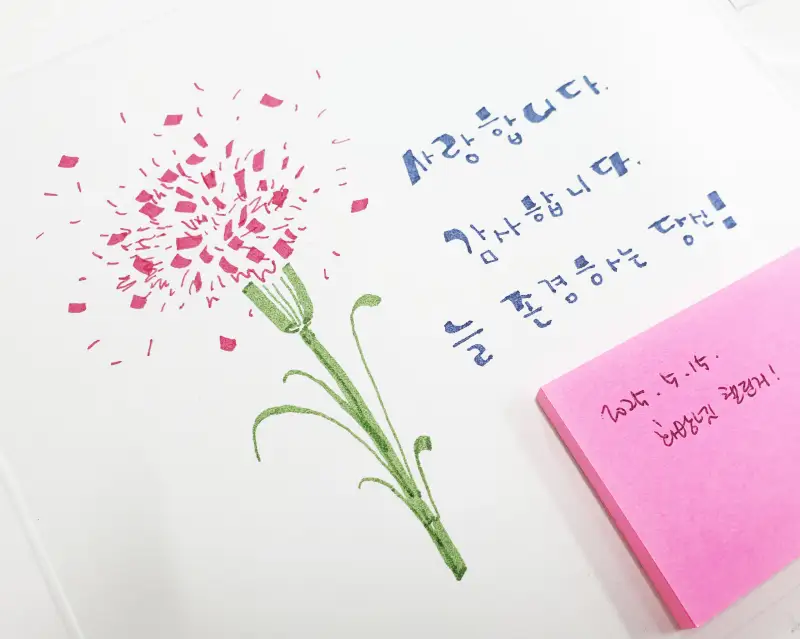 사랑합니다.
감사합니다.
늘 존경하는 당신!
2025. 5. 15.